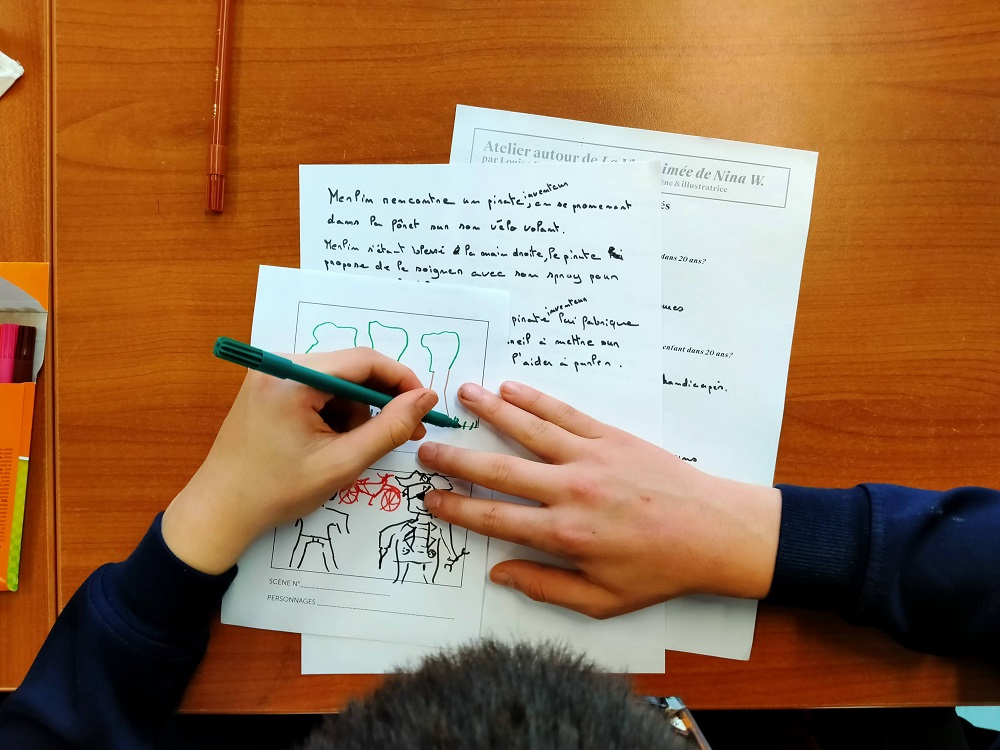 Atelier autour de La Vie
imée de Nina W.
par
ène & illustratrice
és
dans 20 ans?
enfant dans 20 ans?
handicapés.
Merlin rencontre un pirate inventeur, en se promenant
dans la fôret sur son vélo volant.
Merlin s'étant blessé à la main droite, le pirate lui
propose de le soigner avec son spray pour
pirate inventeur lui fabrique
neil à mettre sur
l'aider à parler.
SCÈNE N°
PERSONNAGES